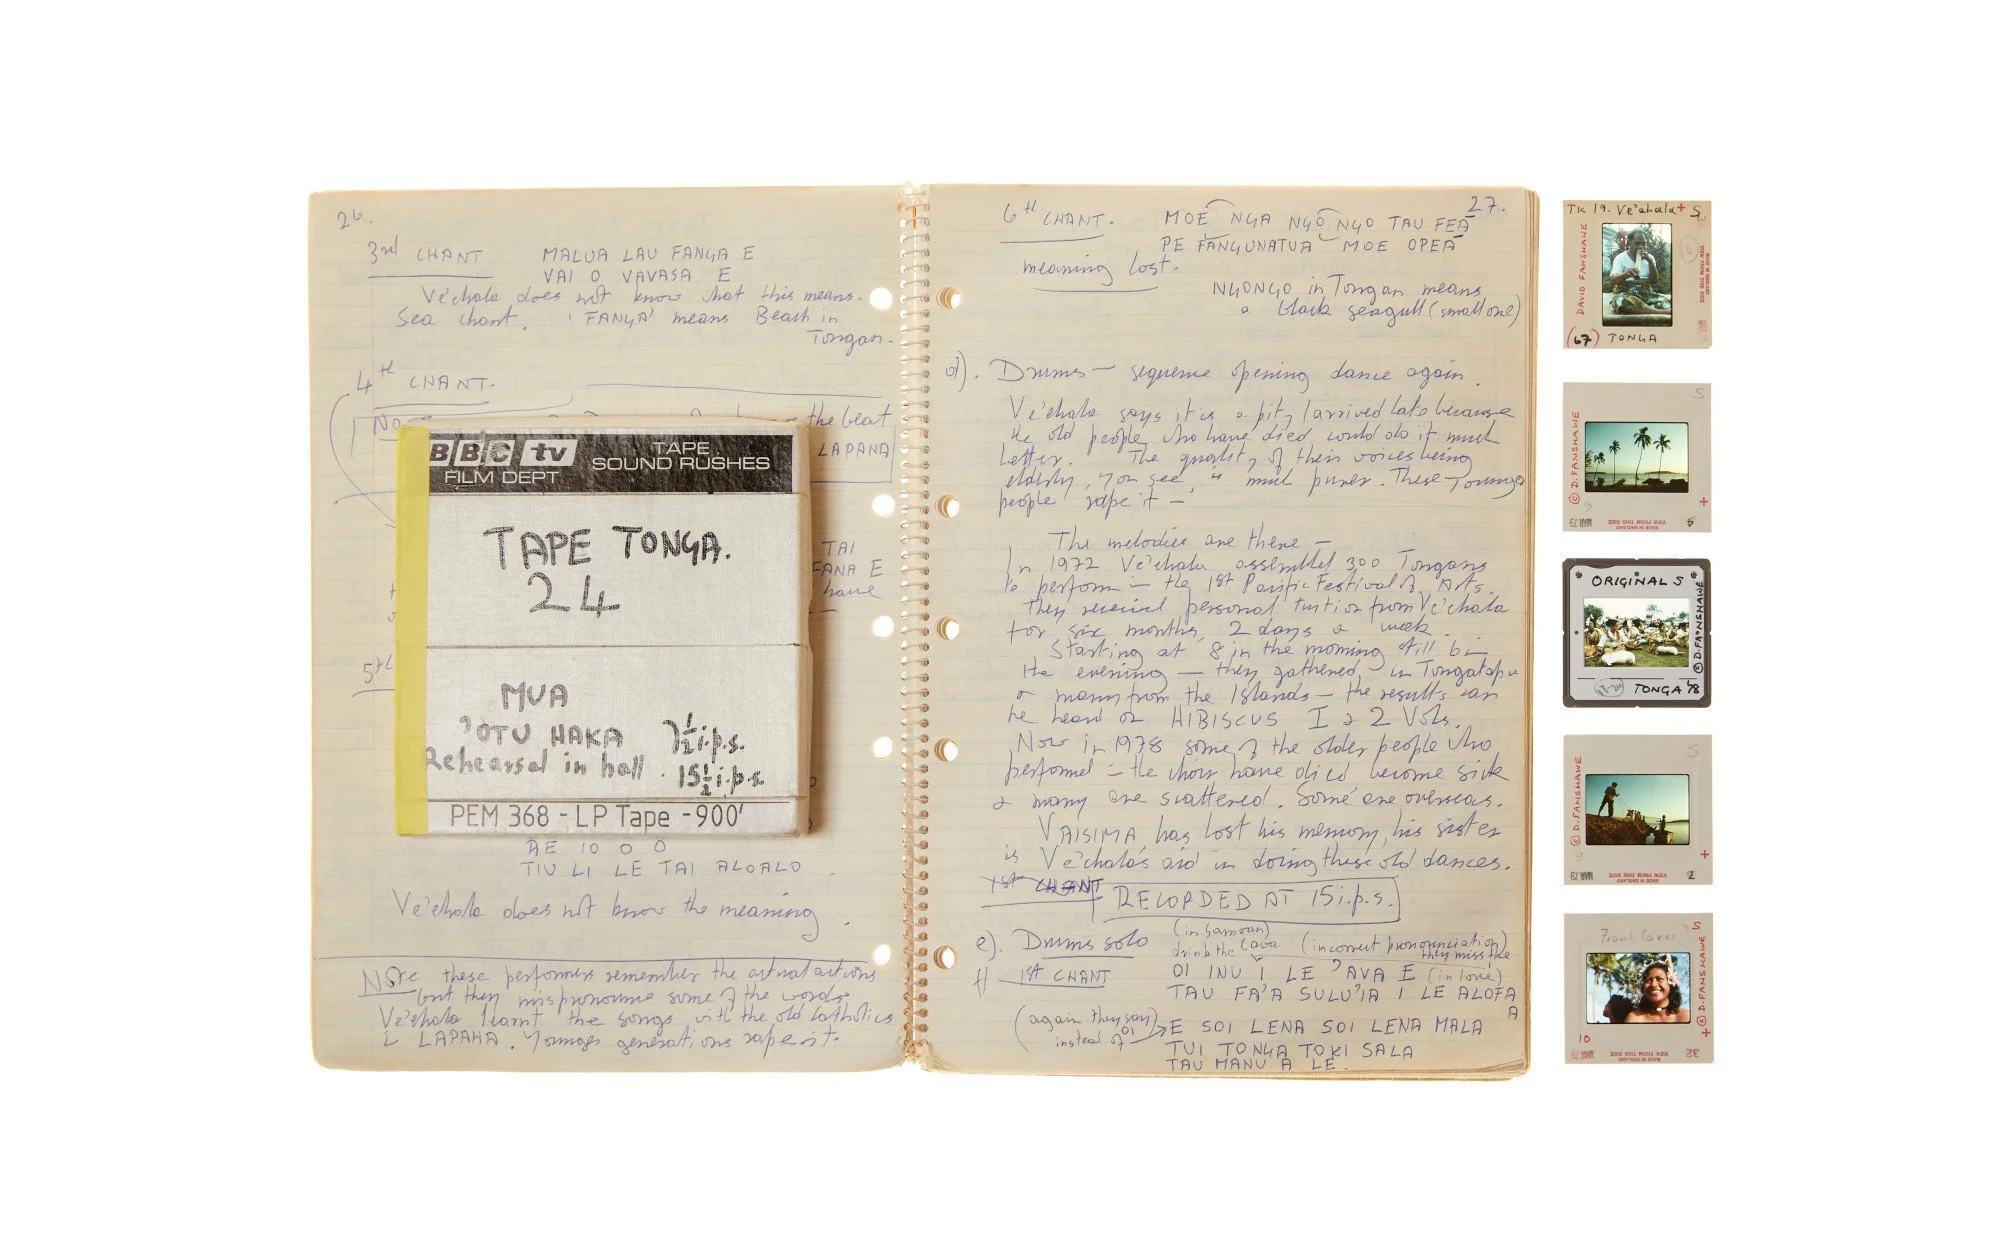 26.
3rd CHANT MALUA LAU FANGA E
VAI O VAVASA E
Ve'ehala does not know what this means.
Sea chant. 'FANGA' means Beach in
Tongan.
4th CHANT.
the beat
LAPAHA
TAI
FANA E
have
5th
BBC tv
FILM DEPT
TAPE
SOUND RUSHES
TAPE TONGA.
24
MUA
'OTU HAKA
Rehearsal in hall.
7½ i.p.s.
15½ i.p.s
PEM 368 - LP Tape - 900'
AE IO O O
TIU LI LE TAI ALOALO
Ve'ehala does not know the meaning.
NOTE these performers remember the actual actions
but they mispronounce some of the words.
Ve'ehala learnt the songs with the old Catholics
LAPAHA. Younger generations rape it.
27.
6th CHANT. MOE NGA NGO NGO TAU FEA
PE FANGUNATUA MOE OPEA
meaning lost.
NGONGO in Tongan means
a black seagull (small one)
d). Drums – sequence opening dance again.
Ve'ehala says it is a pity I arrived late because
the old people who have died could do it much
better. The quality of their voices being
elderly, you see, is much purer. These younger
people rape it –
The melodies are there –
In 1972 Ve'ehala assembled 300 Tongans
to perform – the 1st Pacific Festival of Arts.
They received personal tuition from Ve'ehala
for six months, 2 days a week.
Starting at 8 in the morning till 6 in
the evening – they gathered in Tongatapu
& many from the Islands – the results can
be heard on HIBISCUS I & 2 Vols.
Now in 1978 some of the older people who
performed in the choir have died become sick
& many are scattered. Some are overseas.
VAISIMA has lost his memory, his sister
is Ve'ehala's aid in doing these old dances.
1ST CHANT RECORDED AT 15 i.p.s.
e). Drums solo
(in Samoan)
drink the cava
(incorrect pronounciation)
they miss the
f) 1ST CHANT OI INU I LE 'AVA E (in love)
TAU FA'A SULU'IA I LE ALOFA
A
(again they say E
instead of OI)
SOI LENA SOI LENA MALA
TUI TONGA TOKI SALA
TAU MANU A LE.
TK 19. Ve'ehala + S
DAVID FANSHAWE
VIEW FROM THIS SIDE
(67) TONGA
S
© D. FANSHAWE
+
MAR 79
MADE IN ENGLAND
VIEW FROM THIS SIDE
ORIGINAL S
© D. FANSHAWE
TONGA 78
S
© D. FANSHAWE
+
MAR 79
MADE IN ENGLAND
VIEW FROM THIS SIDE
7
Front Cover? S
© D. FANSHAWE
+
10
MAR 79
MADE IN ENGLAND
VIEW FROM THIS SIDE
32